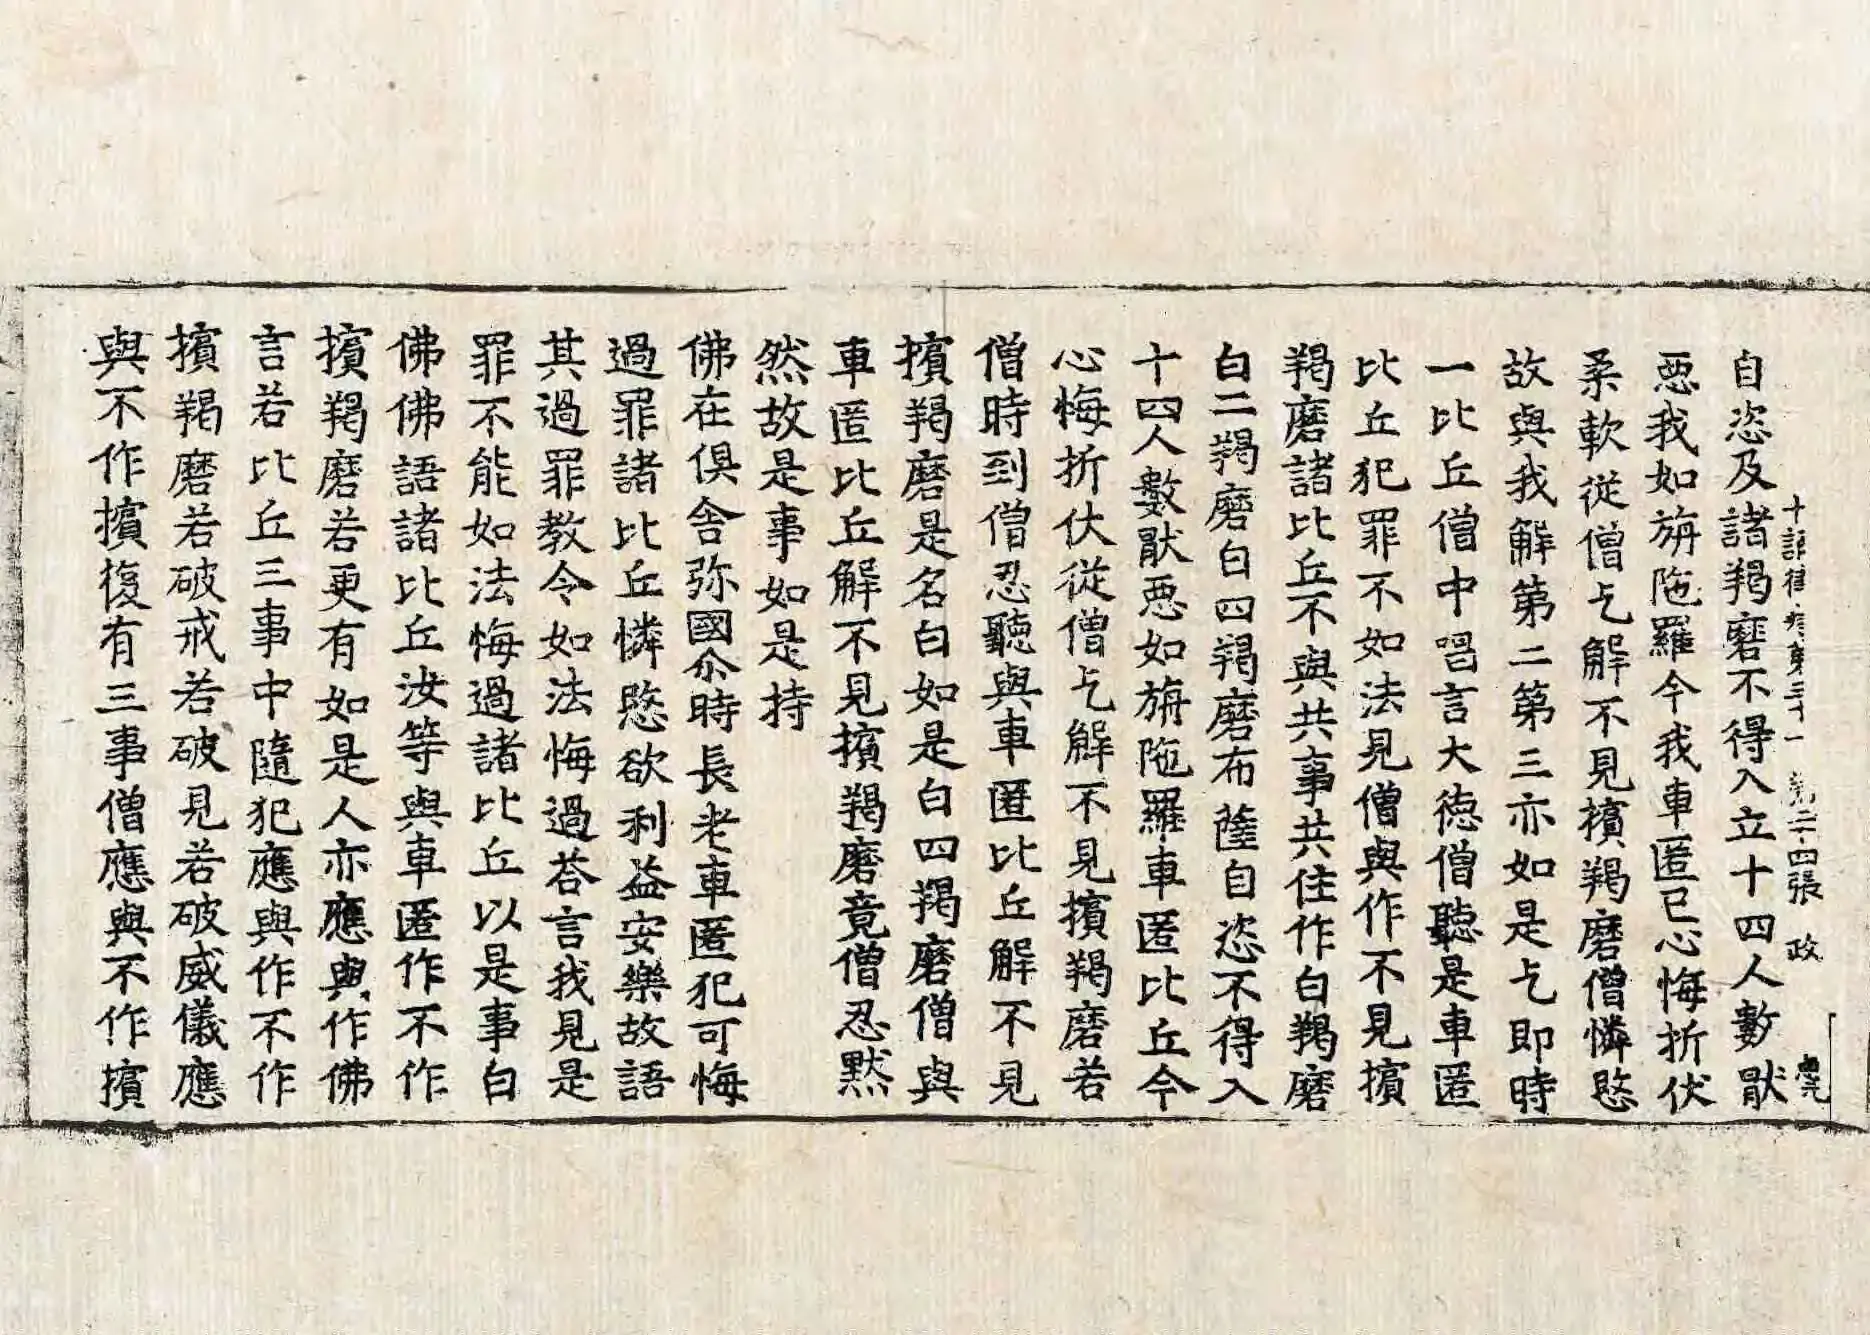 十誦律卷第三十一 第二十四張 政
自恣及諸羯磨不得入立十四人數猒
惡我如旃陁羅今我車匿已心悔折伏
柔軟從僧乞解不見擯羯磨僧憐愍
故與我解第二第三亦如是乞即時
一比丘僧中唱言大德僧聽是車匿
比丘犯罪不如法見僧與作不見擯
羯磨諸比丘不與共事共住作白羯磨
白二羯磨白四羯磨布薩自恣不得入
十四人數猒惡如旃陁羅車匿比丘今
心悔折伏從僧乞解不見擯羯磨若
僧時到僧忍聽與車匿比丘解不見
擯羯磨是名白如是白四羯磨僧與
車匿比丘解不見擯羯磨竟僧忍默
然故是事如是持
佛在俱舍弥國尒時長老車匿犯可悔
過罪諸比丘憐愍欲利益安樂故語
其過罪教令如法悔過荅言我見是
罪不能如法悔過諸比丘以是事白
佛佛語諸比丘汝等與車匿作不作
擯羯磨若更有如是人亦應與作佛
言若比丘三事中隨犯應與作不作
擯羯磨若破戒若破見若破威儀應
與不作擯復有三事僧應與不作擯